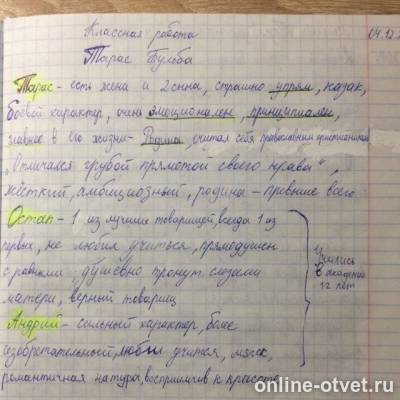 Классная работа
04.12
Тарас Бульба
Тарас - есть жена и 2 сына, страшно упрям, казак,
боевой характер, очень эмоционален, принципиален,
главное в его жизни - Родина, считал себя православным христианином
"Отличался грубой прямотой своего нрава",
жёсткий, амбициозный, родина - превыше всего
Остап - 1 из лучших товарищей, всегда 1 из
первых, не любил учиться, прямодушен
с равными, душевно тронут слезами
матери, верный товарищ
Андрий - сильный характер, более
изобретательный, любил учится, мягок,
романтичная натура, восприимчив к красоте
Учились
в академии
12 лет
online-otvet.ru